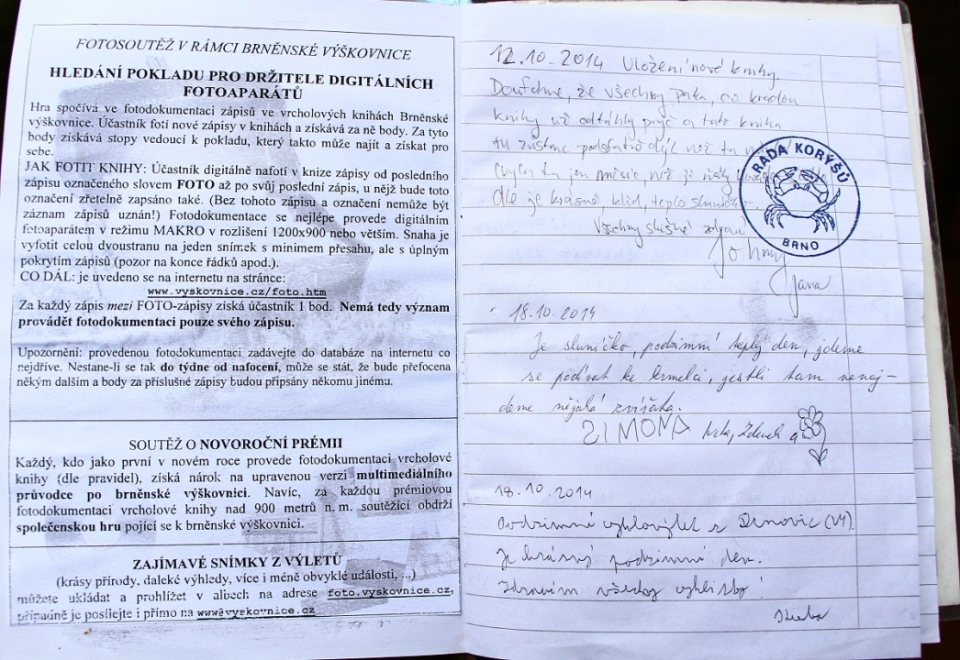 FOTOSOUTĚŽ V RÁMCI BRNĚNSKÉ VÝŠKOVNICE
HLEDÁNÍ POKLADU PRO DRŽITELE DIGITÁLNÍCH
FOTOAPARÁTŮ
Hra spočívá ve fotodokumentaci zápisů ve vrcholových knihách Brněnské
výškovnice. Účastník fotí nové zápisy v knihách a získává za ně body. Za tyto
body získává stopy vedoucí k pokladu, který takto může najít a získat pro
sebe.
JAK FOTIT KNIHU: Účastník digitálně nafotí v knize zápisy od posledního
zápisu označeného slovem FOTO až po svůj poslední zápis, u nějž bude toto
označení zřetelně zapsáno také. (Bez tohoto zápisu a označení nemůže být
záznam zápisů uznán!) Fotodokumentace se nejlépe provede digitálním
fotoaparátem v režimu MAKRO v rozlišení 1200x900 nebo větším. Snaha je
vyfotit celou dvoustranu na jeden snímek s minimem přesahu, ale s úplným
pokrytím zápisů (pozor na konce řádků apod.).
CO DÁL: je uvedeno se na internetu na stránce:
www.vyskovnice.cz/foto.htm
Za každý zápis mezi FOTO-zápisy získá účastník 1 bod. Nemá tedy význam
provádět fotodokumentaci pouze svého zápisu.
Upozornění: provedenou fotodokumentaci zadávejte do databáze na internetu co
nejdříve. Nestane-li se tak do týdne od nafocení, může se stát, že bude přefocena
někým dalším a body za příslušné zápisy budou připsány někomu jinému.
SOUTĚŽ O NOVOROČNÍ PRÉMII
Každý, kdo jako první v novém roce provede fotodokumentaci vrcholové
knihy (dle pravidel), získá nárok na upravenou verzi multimediálního
průvodce po brněnské výškovnici. Navíc, za každou prémiovou
fotodokumentaci vrcholové knihy nad 900 metrů n. m. soutěžící obdrží
společenskou hru pojící se k brněnské výškovnici.
ZAJÍMAVÉ SNÍMKY Z VÝLETŮ
(krásy přírody, daleké výhledy, více i méně obvyklé události, ...)
můžete ukládat a prohlížet v albech na adrese foto.vyskovnice.cz,
případně je posílejte i přímo na www@vyskovnice.cz
12.10.2014 Uložení nové knihy.
Doufáme, že všechny, co kradou
knihy už odtáhly pryč a tato kniha
tu zůstane podstatně dýl než ta
tu jen měsíc, než ji
je krásně klid, teplo
Všechny slušné zdraví
Johny
Jana
RADA KORÝŠŮ
BRNO
18.10.2014
Je sluníčko, podzimní teplý den, jdeme
se podívat ke krmelci, jestli tam nenaj-
deme nějaká zvířátka.
SIMONA Zdeněk a
18.10.2014
Podzimní z Drnovic (VY).
Je krásný podzimní den.
Zdravím všechny